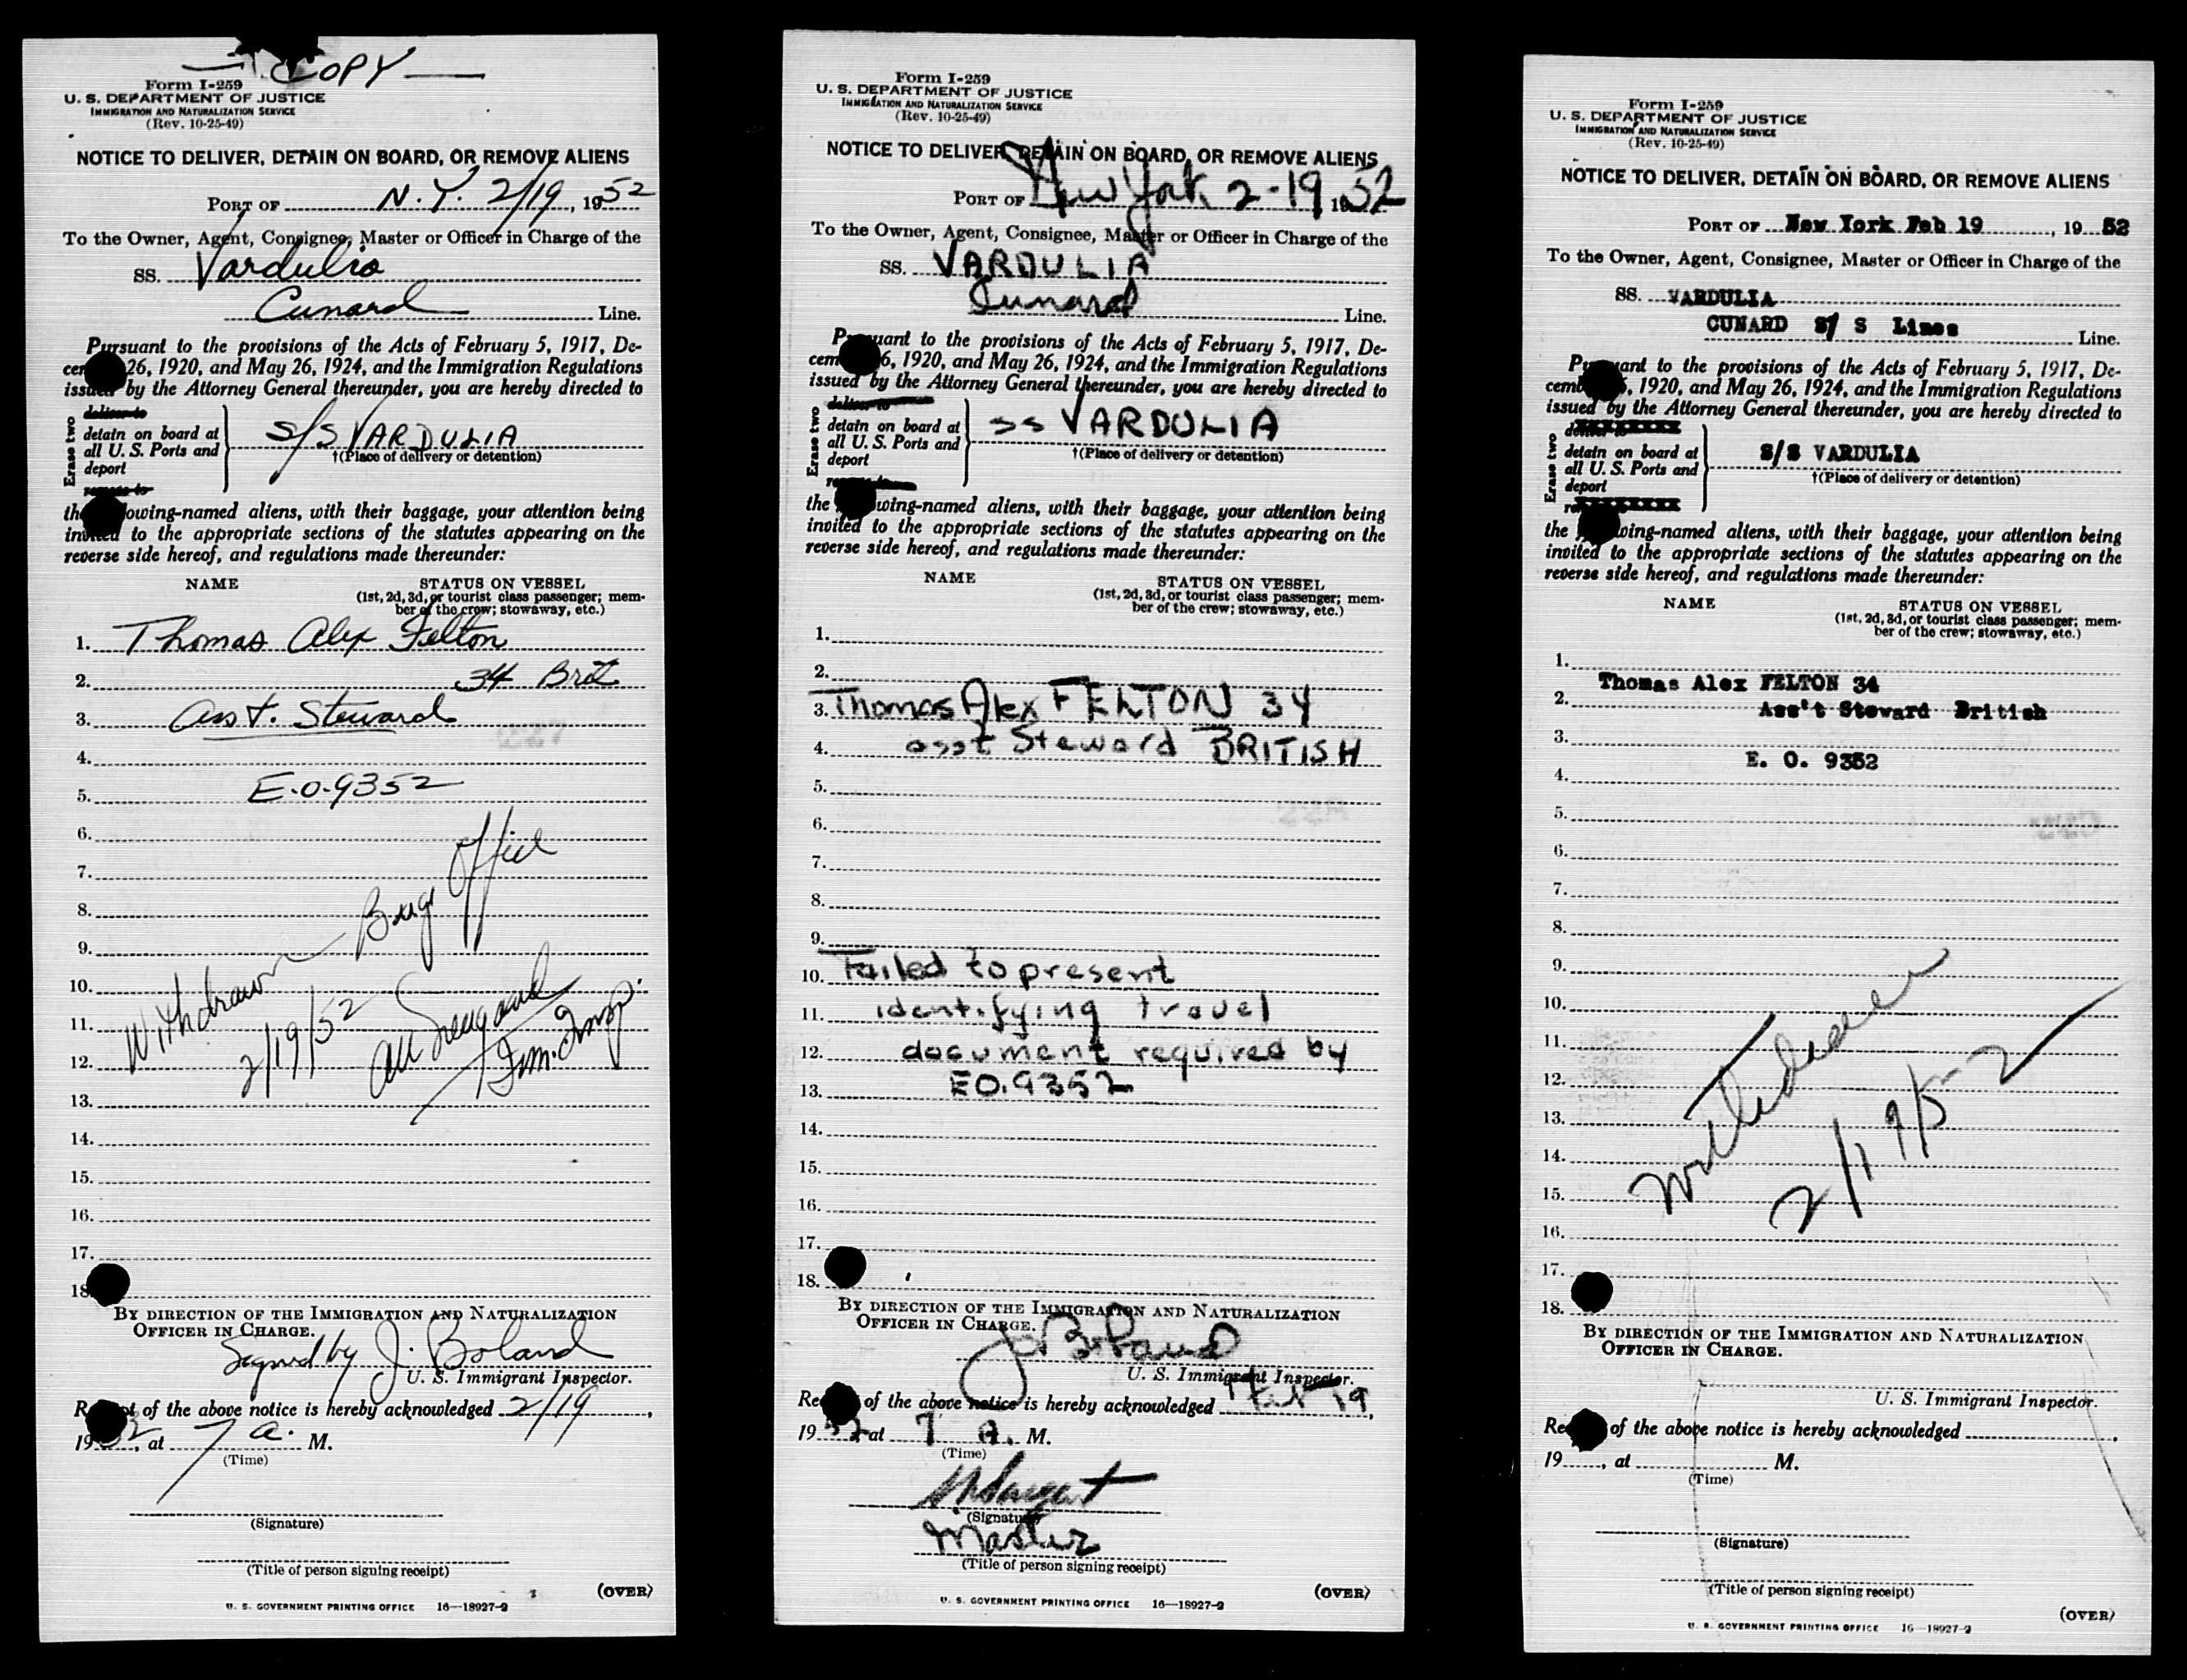 COPY
Form I-259
U. S. DEPARTMENT OF JUSTICE
IMMIGRATION AND NATURALIZATION SERVICE
(Rev. 10-25-49)
NOTICE TO DELIVER, DETAIN ON BOARD, OR REMOVE ALIENS
PORT OF N. Y. 2/19, 1952
To the Owner, Agent, Consignee, Master or Officer in Charge of the
SS. Vardulia
Cunard Line.
Pursuant to the provisions of the Acts of February 5, 1917, De-
cem 26, 1920, and May 26, 1924, and the Immigration Regulations
issued by the Attorney General thereunder, you are hereby directed to
Erase two
deliver to
detain on board at
all U. S. Ports and
deport
remove to
S/S VARDULIA
†(Place of delivery or detention)
the owing-named aliens, with their baggage, your attention being
invited to the appropriate sections of the statutes appearing on the
reverse side hereof, and regulations made thereunder:
NAME STATUS ON VESSEL
(1st, 2d, 3d, or tourist class passenger; mem-
ber of the crew; stowaway, etc.)
1. Thomas Alex Felton
2. 34 Brit
3. Asst. Steward
4.
5. E.O.9352
6.
7.
8.
9.
10.
11.
12.
13.
14.
15.
16.
17.
18.
Withdrawn Office
2/19/52
BY DIRECTION OF THE IMMIGRATION AND NATURALIZATION
OFFICER IN CHARGE.
Signed by J. Boland
U. S. Immigrant Inspector.
R t of the above notice is hereby acknowledged 2/19,
1952, at 7 a. M.
(Time)
(Signature)
(Title of person signing receipt)
(OVER)
U. S. GOVERNMENT PRINTING OFFICE 16—18927-2
Form I-259
U. S. DEPARTMENT OF JUSTICE
IMMIGRATION AND NATURALIZATION SERVICE
(Rev. 10-25-49)
NOTICE TO DELIVER, DETAIN ON BOARD, OR REMOVE ALIENS
PORT OF New York 2-19 1952
To the Owner, Agent, Consignee, Master or Officer in Charge of the
SS. VARDULIA
Cunard Line.
P uant to the provisions of the Acts of February 5, 1917, De-
cem 6, 1920, and May 26, 1924, and the Immigration Regulations
issued by the Attorney General thereunder, you are hereby directed to
Erase two
deliver to
detain on board at
all U. S. Ports and
deport
remove to
SS VARDULIA
†(Place of delivery or detention)
the wing-named aliens, with their baggage, your attention being
invited to the appropriate sections of the statutes appearing on the
reverse side hereof, and regulations made thereunder:
NAME STATUS ON VESSEL
(1st, 2d, 3d, or tourist class passenger; mem-
ber of the crew; stowaway, etc.)
1.
2.
3. Thomas Alex FELTON 34
4. asst Steward BRITISH
5.
6.
7.
8.
9.
10. Failed to present
11. identifying travel
12. document required by
13. EO.9352
14.
15.
16.
17.
18.
BY DIRECTION OF THE IMMIGRATION AND NATURALIZATION
OFFICER IN CHARGE.
J Boland
U. S. Immigrant Inspector.
Re of the above notice is hereby acknowledged Feb 19,
1952 at 7 A. M.
(Time)
(Signature)
Master
(Title of person signing receipt)
(OVER)
U. S. GOVERNMENT PRINTING OFFICE 16—18927-2
Form I-259
U. S. DEPARTMENT OF JUSTICE
IMMIGRATION AND NATURALIZATION SERVICE
(Rev. 10-25-49)
NOTICE TO DELIVER, DETAIN ON BOARD, OR REMOVE ALIENS
PORT OF New York Feb 19, 1952
To the Owner, Agent, Consignee, Master or Officer in Charge of the
SS. VARDULIA
CUNARD S/ S Lines Line.
P ant to the provisions of the Acts of February 5, 1917, De-
cem , 1920, and May 26, 1924, and the Immigration Regulations
issued by the Attorney General thereunder, you are hereby directed to
Erase two
detain on board at
all U. S. Ports and
deport
S/S VARDULIA
†(Place of delivery or detention)
the wing-named aliens, with their baggage, your attention being
invited to the appropriate sections of the statutes appearing on the
reverse side hereof, and regulations made thereunder:
NAME STATUS ON VESSEL
(1st, 2d, 3d, or tourist class passenger; mem-
ber of the crew; stowaway, etc.)
1.
Thomas Alex FELTON 34
2. Ass't Steward British
3.
E. O. 9352
4.
5.
6.
7.
8.
9.
10.
11.
12.
13.
14.
15.
16.
17.
18.
Withdrawn
2/19/52
BY DIRECTION OF THE IMMIGRATION AND NATURALIZATION
OFFICER IN CHARGE.
U. S. Immigrant Inspector.
Re of the above notice is hereby acknowledged
19 , at M.
(Time)
(Signature)
(Title of person signing receipt)
(OVER)
U. S. GOVERNMENT PRINTING OFFICE 16—18927-2